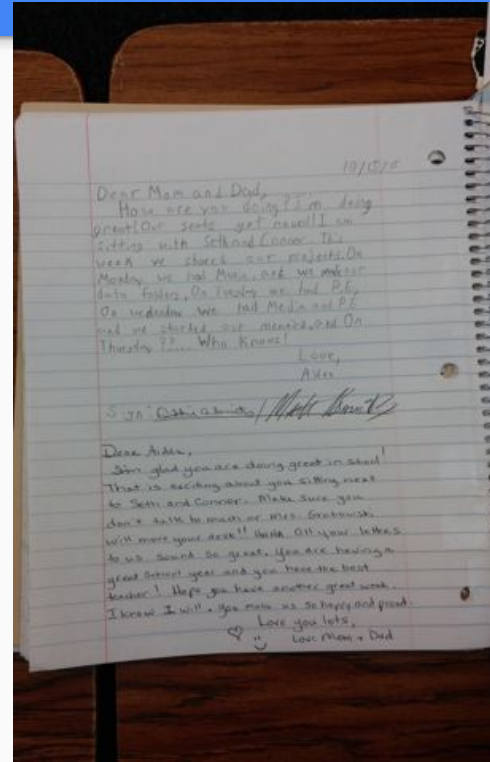 10/15/15
Dear Mom and Dad,
How are you doing? I'm doing
great! Our seats got moved! I am
sitting with Seth and Connor. This
week we shared our projects. On
Monday we had Music, and we made our
data folders. On Tuesday we had P.E,
On wednesday We had Media and P.E
and we started our memoirs, and On
Thursday ??... Who Knows!
Love,
Aiden
Sign:
Dear Aiden,
I'm glad you are doing great in school!
That is exciting about you sitting next
to Seth and Connor. Make sure you
don't talk to much or Mrs. Grabowski
will move your desk!! Haha. All your letters
to us sound so great. You are having a
great school year and you have the best
teacher! Hope you have another great week.
I know I will. You make us so happy and proud.
Love you lots,
Love Mom + Dad